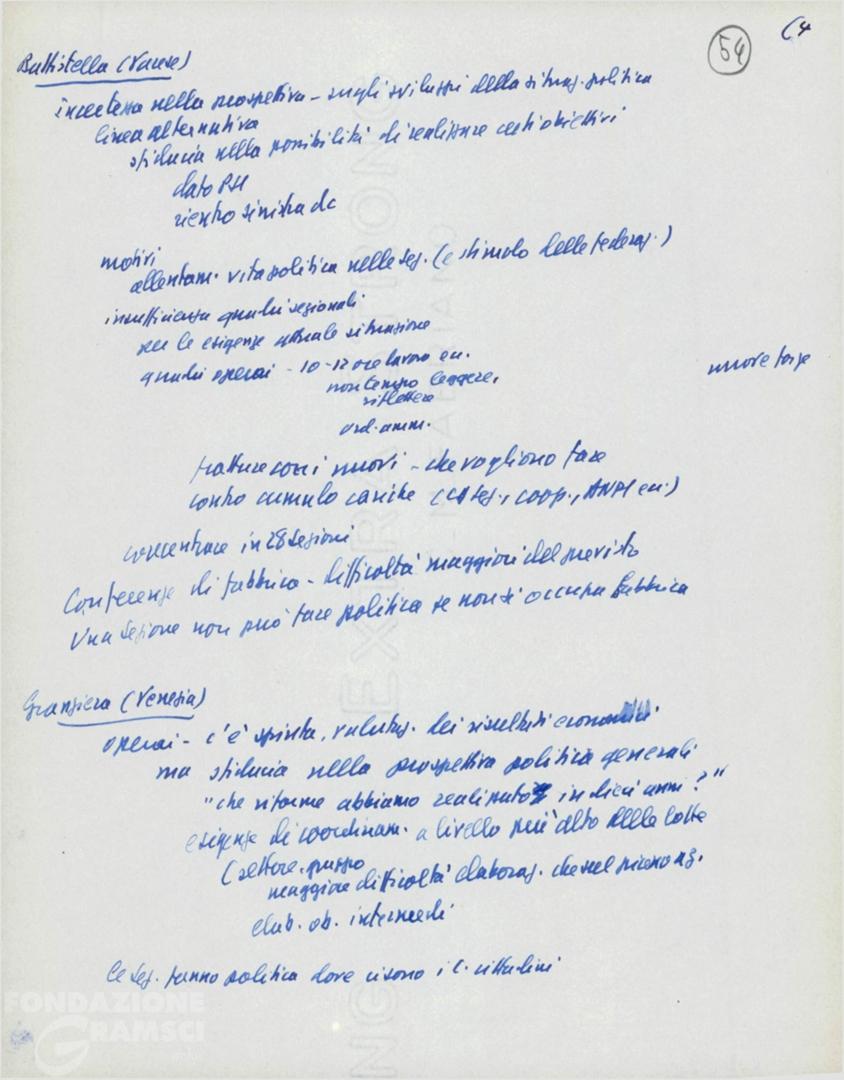 54
(4
Battistella (Varese)
incertezza nella prospettiva - sugli sviluppi della situaz. politica
linea alternativa
sfiducia nella possibilità di realizzare certi obiettivi
dato PSI
rientro sinistra dc
motivi
allentam. vita politica nelle sez. (e stimolo delle federaz.)
insufficienza quadri sezionali
per le esigenze attuale situazione
quadri operai - 10-12 ore lavoro ecc.
non tempo leggere,
riflettere
nuove forze
ord. amm.
con i nuovi - che vogliono fare
contro cumulo cariche (CC sez., coop., ANPI ecc.)
concentrare in 28 sezioni
Conferenze di fabbrica - difficoltà maggiori del previsto
Una sezione non può fare politica se non si occupa fabbrica
Granziera (Venezia)
operai - c'è spinta, valutaz. dei risultati economici
ma sfiducia nella prospettiva politica generali
"che riforme abbiamo realizzato in dieci anni?"
esigenze di coordinam. a livello più alto delle lotte
(settore, gruppo
maggiore difficoltà elaboraz. che nel piano az.
elab. ob. intermedi
le sez. fanno politica dove ci sono i c. cittadini
FONDAZIONE
GRAMSCI